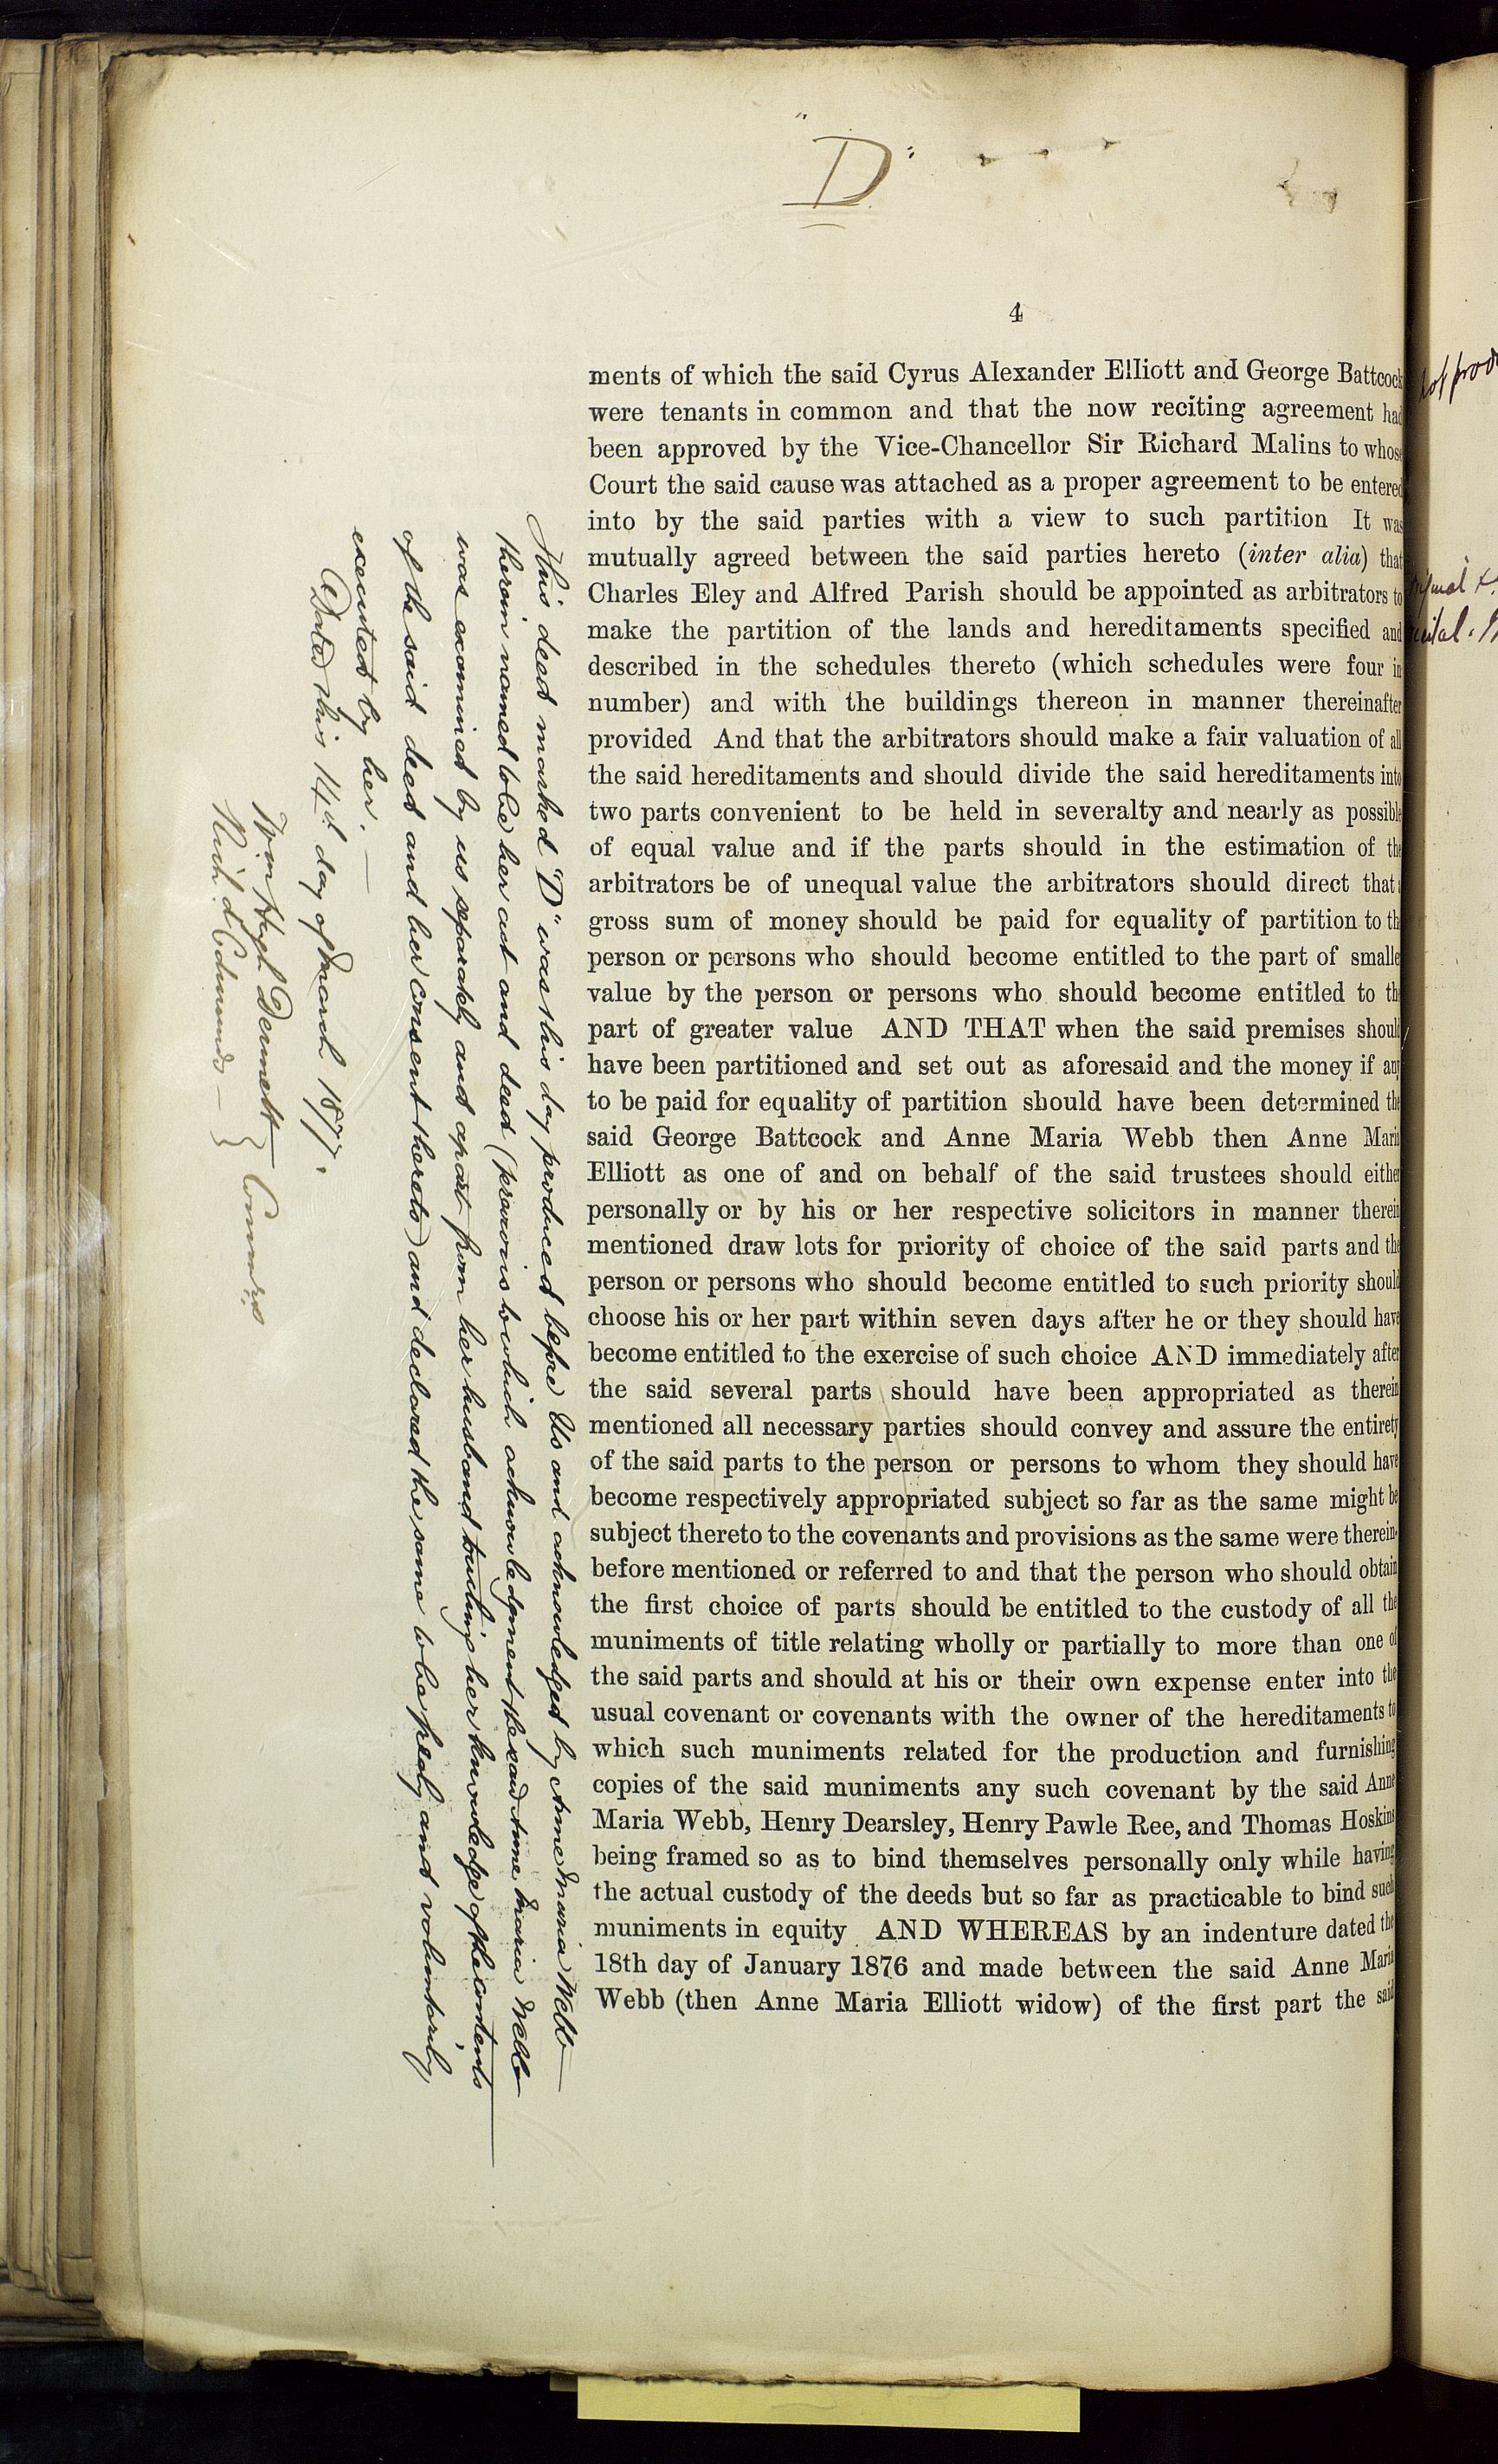 "D"
4
ments of which the said Cyrus Alexander Elliott and George Battcock
were tenants in common and that the now reciting agreement had
been approved by the Vice-Chancellor Sir Richard Malins to whose
Court the said cause was attached as a proper agreement to be entered
into by the said parties with a view to such partition It was
mutually agreed between the said parties hereto (inter alia) that
Charles Eley and Alfred Parish should be appointed as arbitrators to
make the partition of the lands and hereditaments specified and
described in the schedules thereto (which schedules were four in
number) and with the buildings thereon in manner thereinafter
provided And that the arbitrators should make a fair valuation of all
the said hereditaments and should divide the said hereditaments into
two parts convenient to be held in severalty and nearly as possible
of equal value and if the parts should in the estimation of the
arbitrators be of unequal value the arbitrators should direct that a
gross sum of money should be paid for equality of partition to the
person or persons who should become entitled to the part of smaller
value by the person or persons who should become entitled to the
part of greater value AND THAT when the said premises should
have been partitioned and set out as aforesaid and the money if any
to be paid for equality of partition should have been determined the
said George Battcock and Anne Maria Webb then Anne Maria
Elliott as one of and on behalf of the said trustees should either
personally or by his or her respective solicitors in manner therein
mentioned draw lots for priority of choice of the said parts and the
person or persons who should become entitled to such priority should
choose his or her part within seven days after he or they should have
become entitled to the exercise of such choice AND immediately after
the said several parts should have been appropriated as therein
mentioned all necessary parties should convey and assure the entirety
of the said parts to the person or persons to whom they should have
become respectively appropriated subject so far as the same might be
subject thereto to the covenants and provisions as the same were therein-
before mentioned or referred to and that the person who should obtain
the first choice of parts should be entitled to the custody of all the
muniments of title relating wholly or partially to more than one of
the said parts and should at his or their own expense enter into the
usual covenant or covenants with the owner of the hereditaments to
which such muniments related for the production and furnishing
copies of the said muniments any such covenant by the said Anne
Maria Webb, Henry Dearsley, Henry Pawle Ree, and Thomas Hoskins
being framed so as to bind themselves personally only while having
the actual custody of the deeds but so far as practicable to bind such
muniments in equity AND WHEREAS by an indenture dated the
18th day of January 1876 and made between the said Anne Maria
Webb (then Anne Maria Elliott widow) of the first part the said
This deed marked "D" was this day produced before Us and acknowledged by Anne Maria Webb
therein named to be her act and deed (previous to which acknowledgment the said Anne Maria Webb
was examined by us separately and apart from her husband touching her knowledge of the contents
of the said deed and her consent thereto) and declared the same to be freely and voluntarily
executed by her.
Dated this 14th day of March 1877.
Wm Hugh Dermett
Richd Edmunds } Commrs